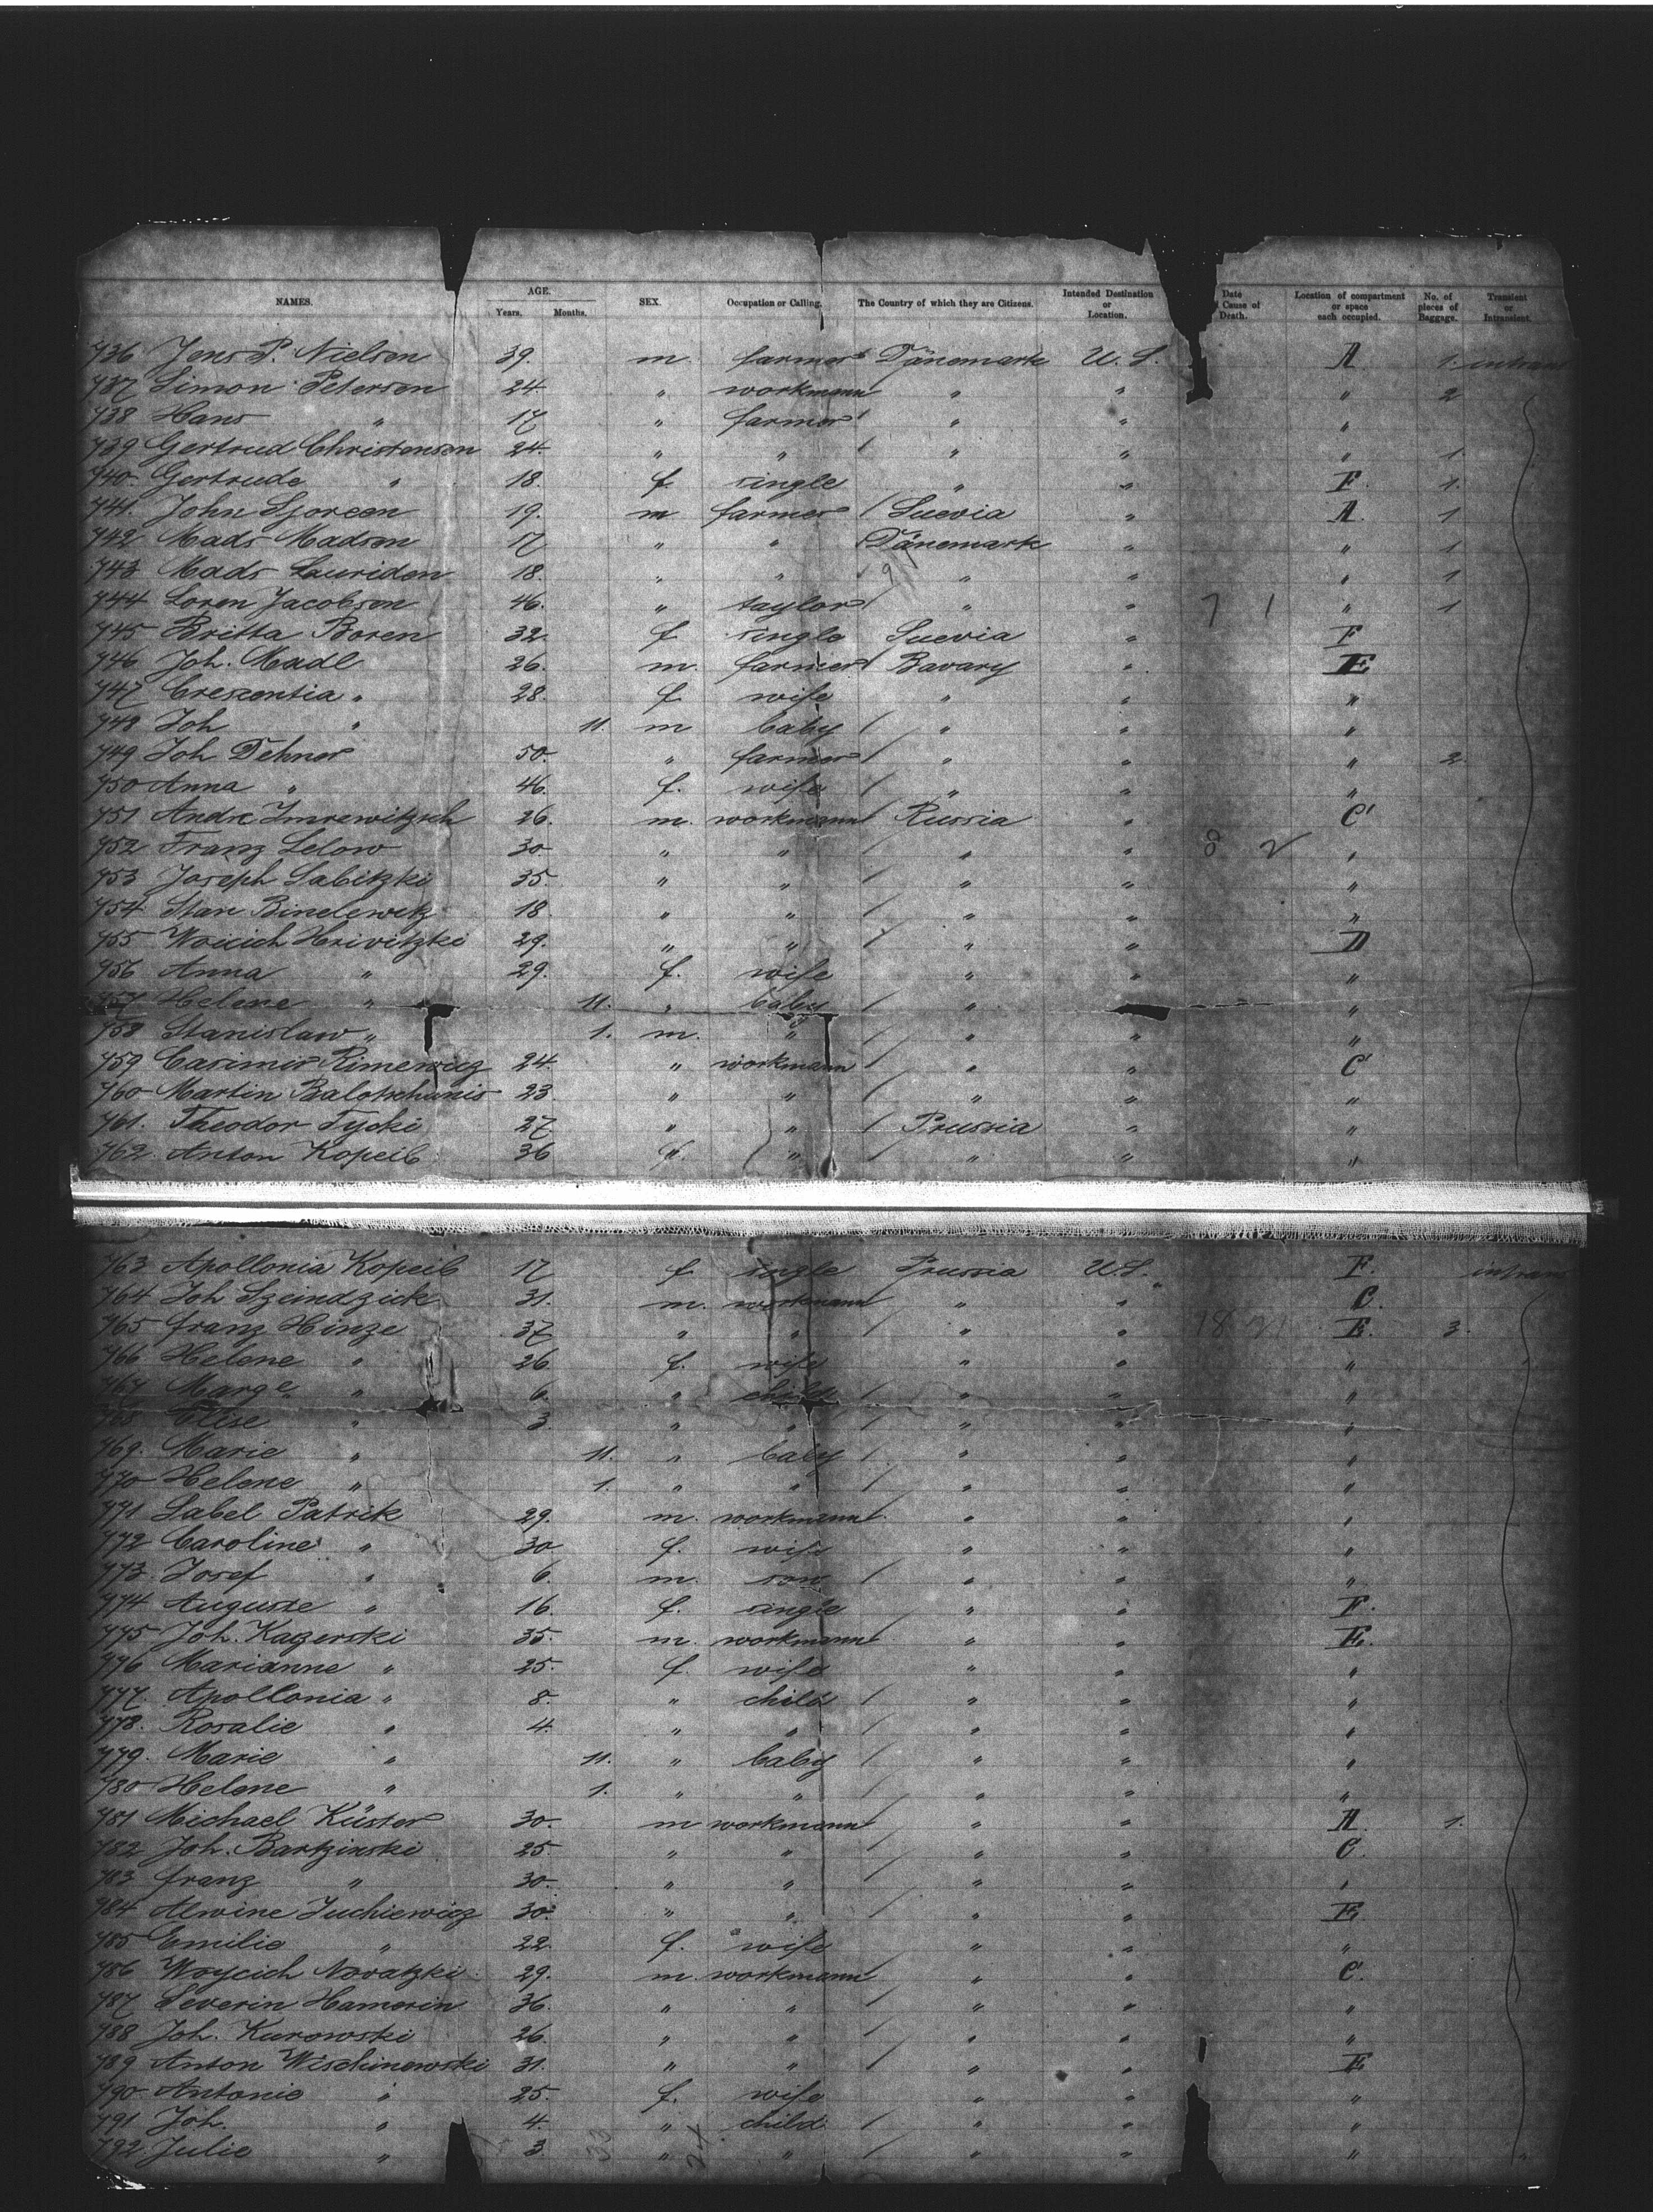 NAMES. AGE. Years. Months. SEX. Occupation or Calling. The Country of which they are Citizens. Intended Destination or Location. Date Cause of Death. Location of compartment or space each occupied. No. of pieces of Baggage. Transient or Intransient.
736 Jens P. Nielsen 39. m. farmer Dänemark U. S. A 1. intrans
737 Simon Petersen 24. " workmann " " " 2
738 Hans " 17 " farmer " " "
739 Gertrud Christensen 24. " " " " " 1.
740. Gertrude " 18. f. single " " F. 1.
741. John Sjoreen 19. m farmer Suevia " A. 1
742 Mads Madsen 17 " " Dänemark " " 1
743 Mads Lauriden 18. " " " " " 1
744 Loren Jacobsen 46. " taylor " " 7 1 " 1
745 Britta Boren 32. f. single Suevia " F
746 Joh. Madl 26. m. farmer Bavary " E
747 Crezentia " 28. f. wife " " "
748 Joh " 11. m baby " " "
749 Joh Dehner 50. " farmer " " " 2
750 Anna " 46. f. wife " " "
751 Andre Imrewitzsch 26. m. workmann Russia " C
752 Franz Lelow 30 " " " " 8 2 "
753 Joseph Labitzki 35. " " " " "
754 Stan Binelewitz 18 " " " " "
755 Woicich Hrivitzki 29. " " " " D
756 Anna " 29. f. wife " " "
757 Helene " 11. " baby " "
758 Stanislaw " 1. m. " " " "
759 Casimir Rimewicz 24. " workmann " " C
760 Martin Balotschunis 23 " " " " "
761. Theodor Tycki 27 " " Prussia " "
762. Anton Kopeib 36 " " " " "
763 Apollonia Kopeib 17 f. single Prussia U.S. F. intrans
764 Joh Szendzick 31. m. workmann " " C.
765 Franz Hinze 37 " " " " 18 21 E. 3.
766 Helene " 26 f. wife " " "
767 Marge " 6. " child " " "
768 Elise " 3. " " " " "
769. Marie " 11. " baby " " "
770 Helene " 1. " " " " "
771 Label Patrik 29. m. workmann " " "
772 Caroline " 30 f. wife " " "
773. Josef " 6. m. son " " "
774 Auguste " 16. f. single " " F.
775 Joh. Kagerski 35. m. workmann " " E.
776 Marianne " 25. f. wife " " "
777. Apollonia " 8. " child " " "
778. Rosalie " 4. " " " " "
779. Marie " 11. " baby " " "
780 Helene " 1. " " " " "
781 Michael Küster 30. m workmann " " A. 1.
782 Joh. Bartzinski 25. " " " " C.
783 Franz " 30. " " " " "
784 Alwine Juchiewicz 30. " " " " E
785 Emilie " 22. f. wife " " "
786 Woycich Novatzki 29. m. workmann " " C.
787 Severin Hamerin 36. " " " " "
788 Joh. Kurowski 26. " " " " "
789 Anton Wischinewski 31. " " " " E
790 Antonie " 25. f. wife " " "
791 Joh. " 4. " child " " "
792 Julie " 3. " " " " "